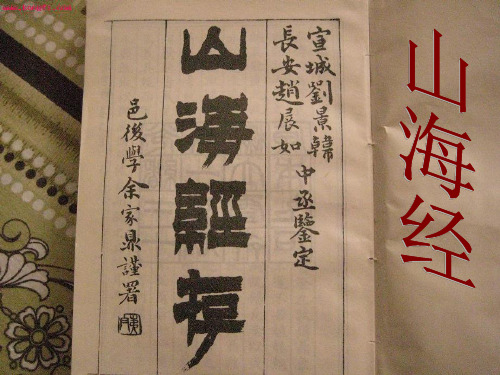 宣城劉景韓
長安趙展如
中丞鑒定
山海經存
邑後學余家鼎謹署
山海经